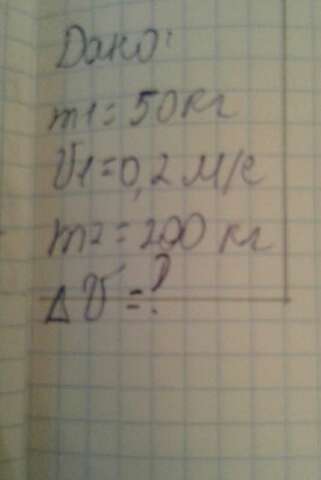 Дано:
m1=50кг
V1=0,2 м/с
m2=200 кг
ΔV=?